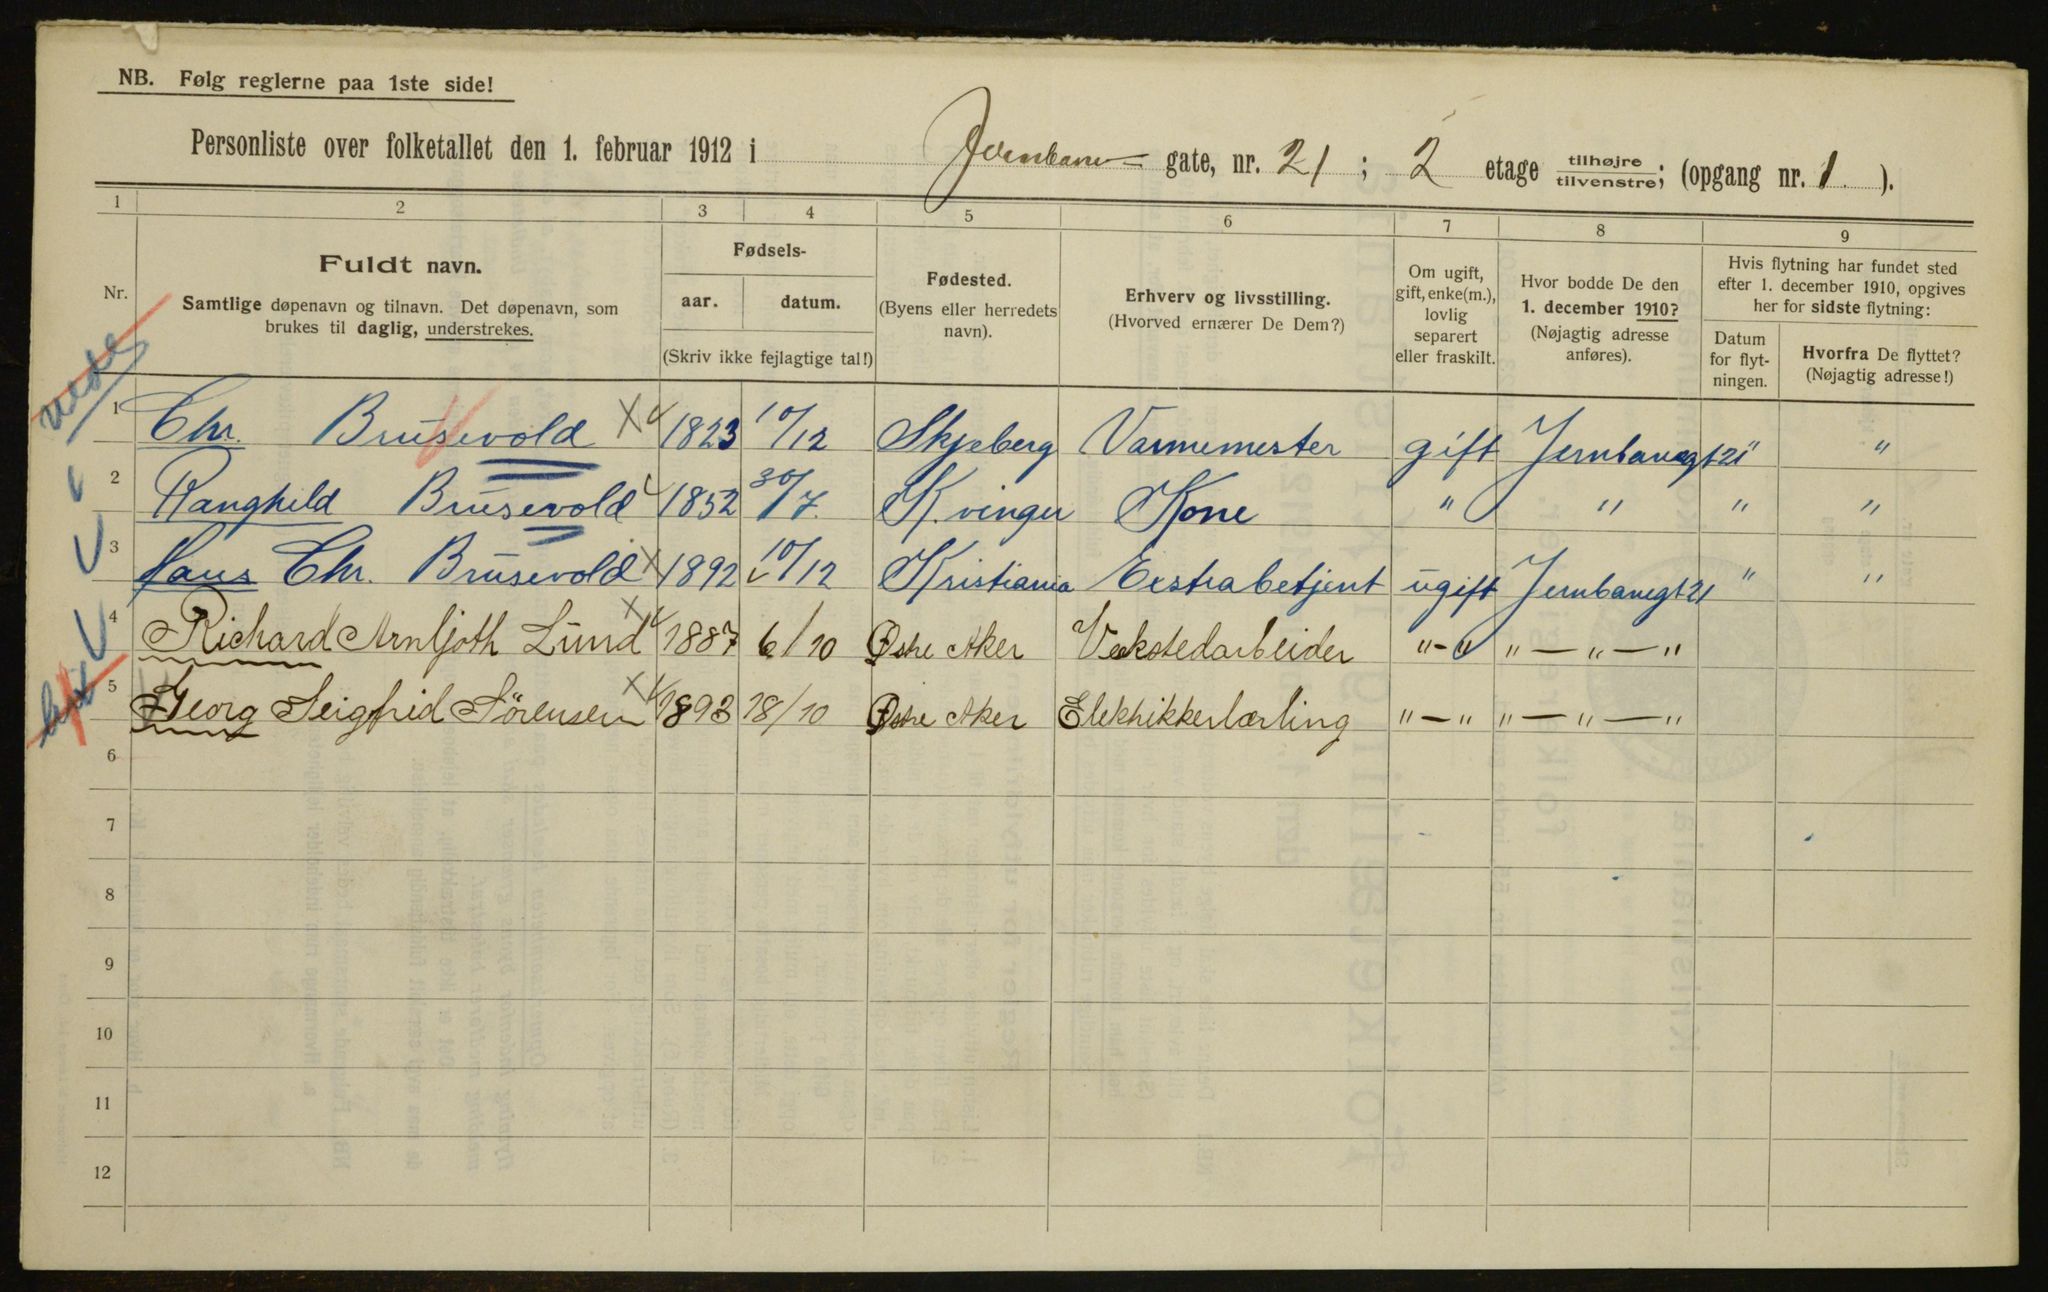 NB. Følg reglerne paa 1ste side!
Personliste over folketallet den 1. februar 1912 i Jernbane- gate, nr. 21; 2 etage tilhøjre/tilvenstre; (opgang nr. 1).
1 2 3 4 5 6 7 8 9
Nr.
Fuldt navn.
Samtlige døpenavn og tilnavn. Det døpenavn, som
brukes til daglig, understrekes.
Fødsels-
aar. datum.
(Skriv ikke fejlagtige tal!)
Fødested.
(Byens eller herredets
navn).
Erhverv og livsstilling.
(Hvorved ernærer De Dem?)
Om ugift,
gift, enke(m.),
lovlig
separert
eller fraskilt.
Hvor bodde De den
1. december 1910?
(Nøjagtig adresse
anføres).
Hvis flytning har fundet sted
efter 1. december 1910, opgives
her for sidste flytning:
Datum
for flyt-
ningen.
Hvorfra De flyttet?
(Nøjagtig adresse!)
1 Chr. Brusevold 1823 10/12 Skjeberg Varmemester gift Jernbanegt 21 " "
2 Ranghild Brusevold 1852 30/7 K.vinger Kone " " " "
3 Hans Chr. Brusevold 1892 10/12 Kristiania Ekstrabetjent ugift Jernbanegt 21 " "
4 Richard Arnljoth Lund 1887 6/10 Østre Aker Verkstedarbeider "-" "-"-"
5 Georg Seigfrid Sørensen 1893 18/10 Østre Aker Elektrikkerlærling "-" "-"-"
6
7
8
9
10
11
12